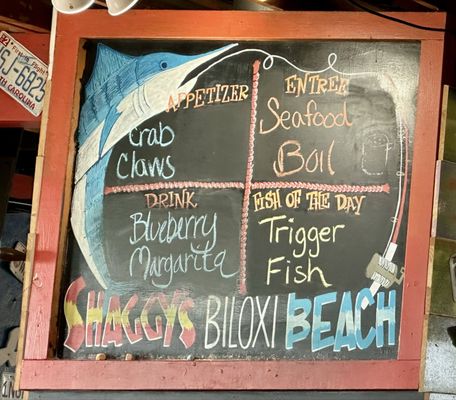 GJ-6625
TH CAROLINA
APPETIZER
Crab
Claws
ENTREE
Seafood
Boil
DRINK
Blueberry
Margarita
FISH OF THE DAY
Trigger
Fish
SHAGGYS BILOXI BEACH